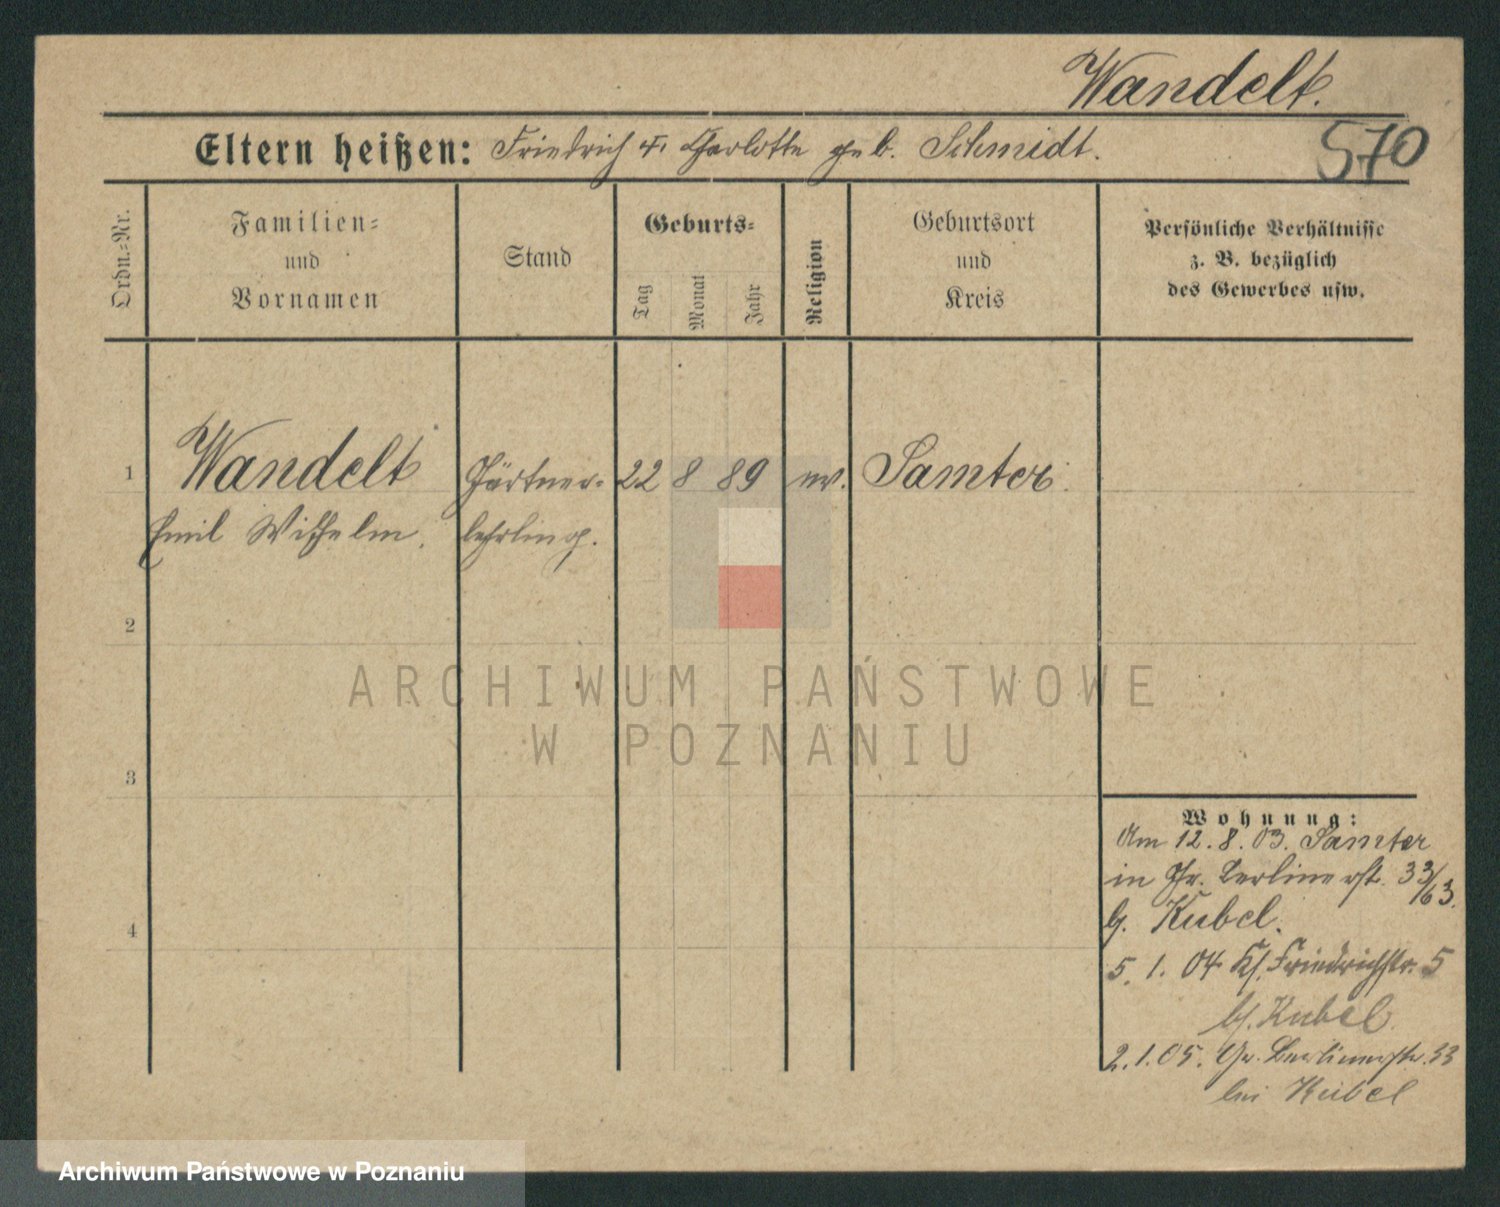 Wandelt.
Eltern heißen: Friedrich u. Charlotte geb. Schmidt.
570
Ordn.-Nr.
Familien-
und
Vornamen
Stand
Geburts-
Tag
Monat
Jahr
Religion
Geburtsort
und
Kreis
Persönliche Verhältnisse
z. B. bezüglich
des Gewerbes usw.
1 Wandelt Gärtner- 22 8 89 ev. Samter
Emil Wilhelm. lehrling.
2
ARCHIWUM PAŃSTWOWE
W POZNANIU
3
Wohnung:
Am 12. 8. 03. Samter
in Gr. Berlinerstr. 33/63.
b. Kubel.
4
5. 1. 04 Kl. Friedrichstr. 5
b. Kubel.
2. 1. 05. Gr. Berlinerstr. 33
bei Kubel
Archiwum Państwowe w Poznaniu